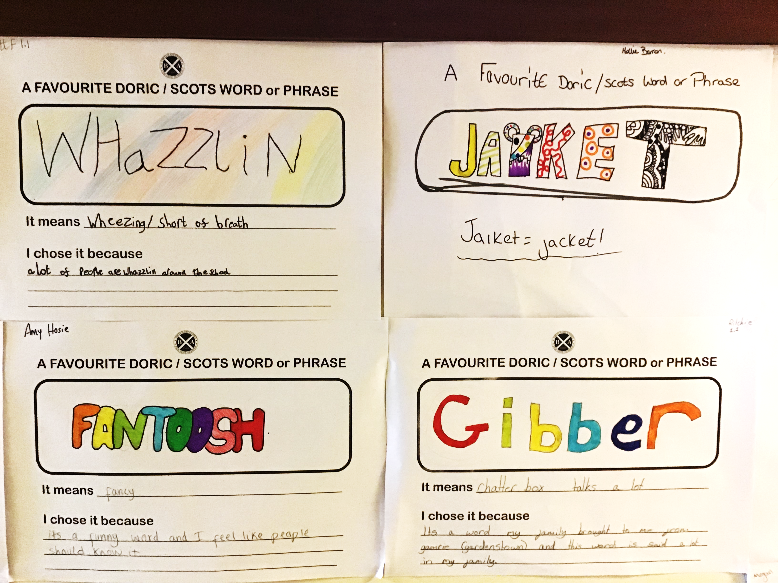 A FAVOURITE DORIC / SCOTS WORD or PHRASE
WHaZZLiN
It means Wheezing/ short of breath
I chose it because
a lot of people are whazzlin around the
Nollie Barron.
A Favourite Doric/scots Word or Phrase
JAIKET
Jaiket = jacket!
Amy Hosie
A FAVOURITE DORIC / SCOTS WORD or PHRASE
FANTOOSH
It means fancy
I chose it because
its a funny word and I feel like people
should know it
A FAVOURITE DORIC / SCOTS WORD or PHRASE
Gibber
It means chatter box talks a lot
I chose it because
Its a word my family brought to me from
(gardenstown) and this word is said a lot
in my family.